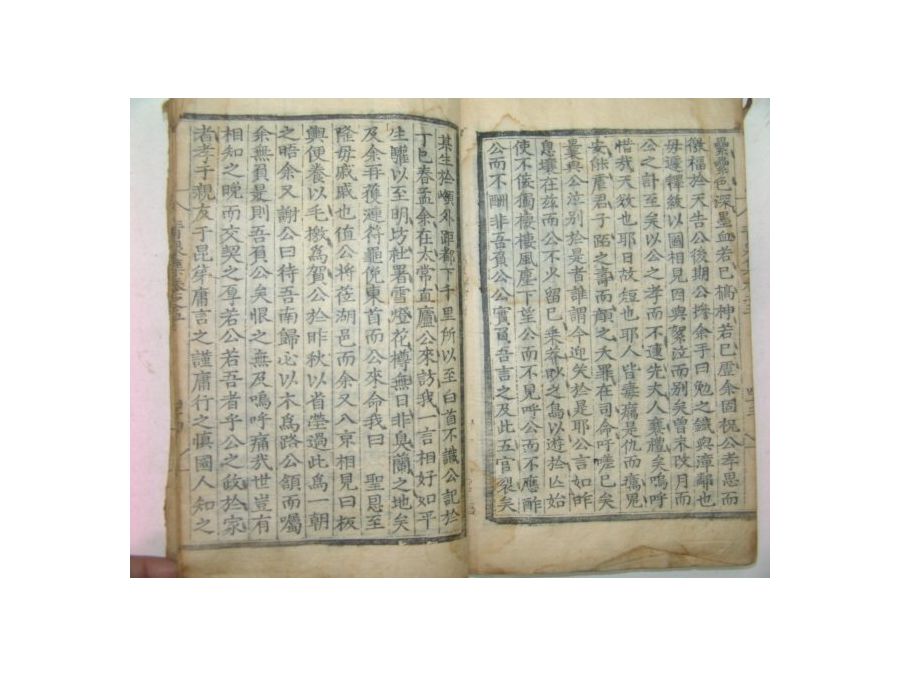 纍纍色深墨血若已槁神若已虛余固祝公孝思而
徼福於天告公後期公摻余手曰勉之鐵與漳鄰也
毋遽釋斂以國相見因與絮泣而別矣曾未改月而
公之訃至矣以公之孝而不逮先大人襄禮矣嗚呼
惜我天斂也耶日故短也耶人皆毒癘是仇而癘兄
安能虐君子跖之壽而顏之夭罪在司命呼嗟已矣
最與公淳別於是者誰謂今迎哭於是耶公言如昨
息壤在茲而公不少留已乘莽眇之鳥以遊於亡始
使不佞獨棲棲風塵下望公而不見呼公而不應酢
公而不酬非吾負公公實負吾言之及此五官裂矣
某生於嶺外距都下千里所以至白首不識公記於
丁巳春孟余在太常直廬公來訪我一言相好如平
生驩以至明坊社署雪燈花樽無日非臭蘭之地矣
及余再獲漣符龜俛東首而公來命我曰 聖恩至
隆毋戚戚也值公將莅湖邑而余又入京相見曰板
輿便養以毛檄為賀公於昨秋以省塋過此為一朝
之晤余又謝公曰待吾南歸必以木為路公頷而囑
余無負是則吾負公矣恨之無及嗚呼痛我世豈有
相知之晚而文契之厚若公若吾者乎公之敛於家
者孝于親友于昆弟庸言之謹庸行之慎國人知之